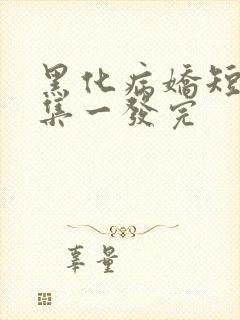 黑化病嬌短
集一發完
辜量